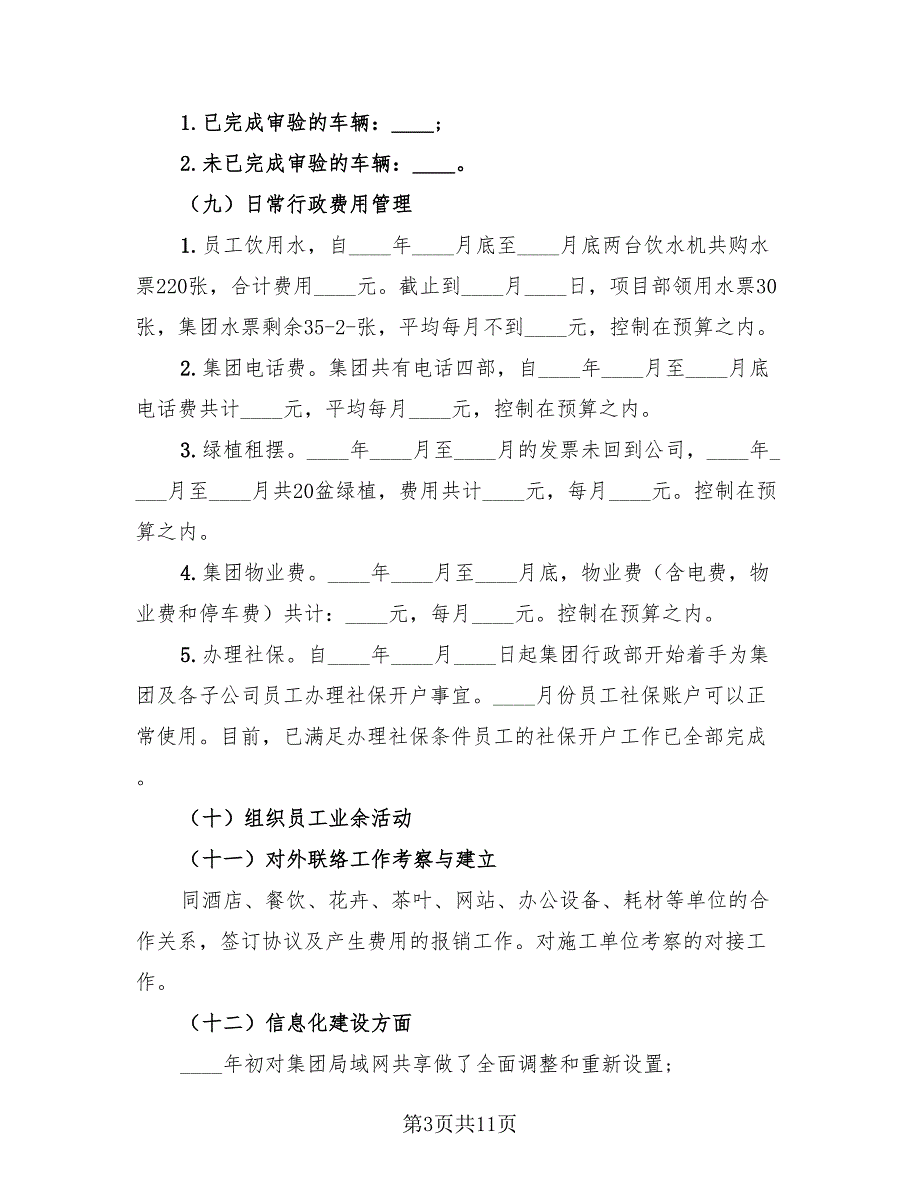 1.已完成审验的车辆：____;
2.未已完成审验的车辆：____。
（九）日常行政费用管理
1.员工饮用水，自____年____月底至____月底两台饮水机共购水
票220张，合计费用____元。截止到____月____日，项目部领用水票30
张，集团水票剩余35-2-张，平均每月不到____元，控制在预算之内。
2.集团电话费。集团共有电话四部，自____年____月至____月底
电话费共计____元，平均每月____元，控制在预算之内。
3.绿植租摆。____年____月至____月的发票未回到公司，____年_
___月至____月共20盆绿植，费用共计____元，每月____元。控制在预
算之内。
4.集团物业费。____年____月至____月底，物业费（含电费，物
业费和停车费）共计：____元，每月____元。控制在预算之内。
5.办理社保。自____年____月____日起集团行政部开始着手为集
团及各子公司员工办理社保开户事宜。____月份员工社保账户可以正
常使用。目前，已满足办理社保条件员工的社保开户工作已全部完成
。
（十）组织员工业余活动
（十一）对外联络工作考察与建立
同酒店、餐饮、花卉、茶叶、网站、办公设备、耗材等单位的合
作关系，签订协议及产生费用的报销工作。对施工单位考察的对接工
作。
（十二）信息化建设方面
____年初对集团局域网共享做了全面调整和重新设置;
第3页共11页